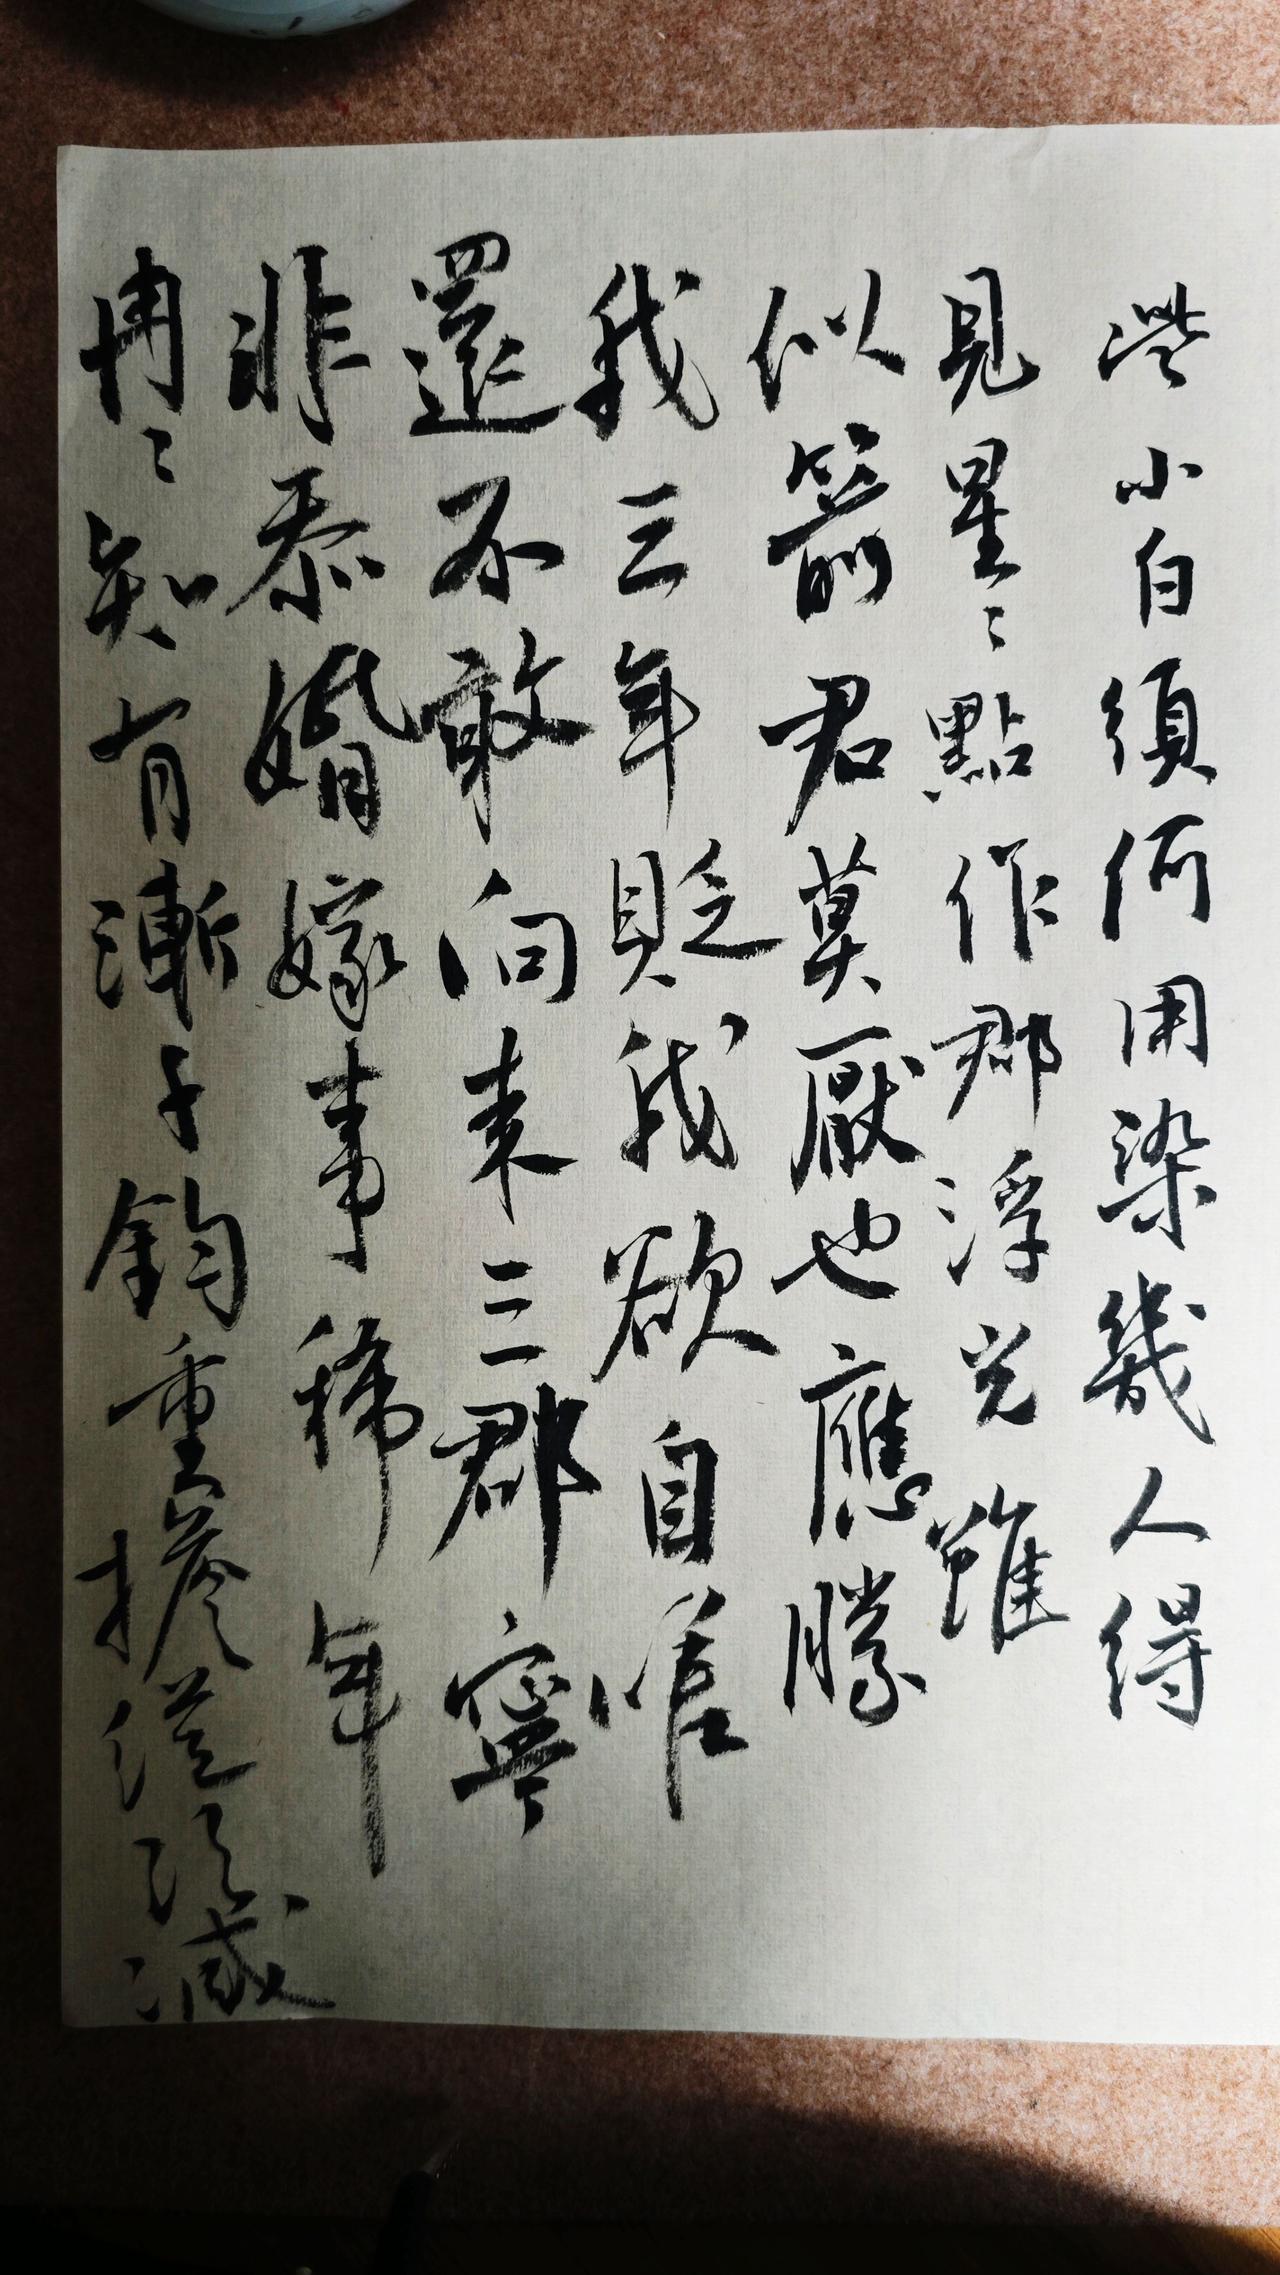 些小白須何用染幾人得
見星〻點作郡浮光雖
似箭君莫厭也應勝
我三年貶我欲自嗟
還不敢向來三郡寧
非忝婚嫁事稀年
冉〻知有漸千鈞重擔從頭減